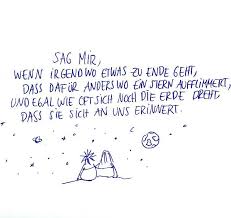 SAG MIR,
WENN IRGENDWO ETWAS ZU ENDE GEHT,
DASS DAFÜR ANDERSWO EIN STERN AUFFLIMMERT,
UND EGAL WIE OFT SICH NOCH DIE ERDE DREHT,
DASS SIE SICH AN UNS ERINNERT.